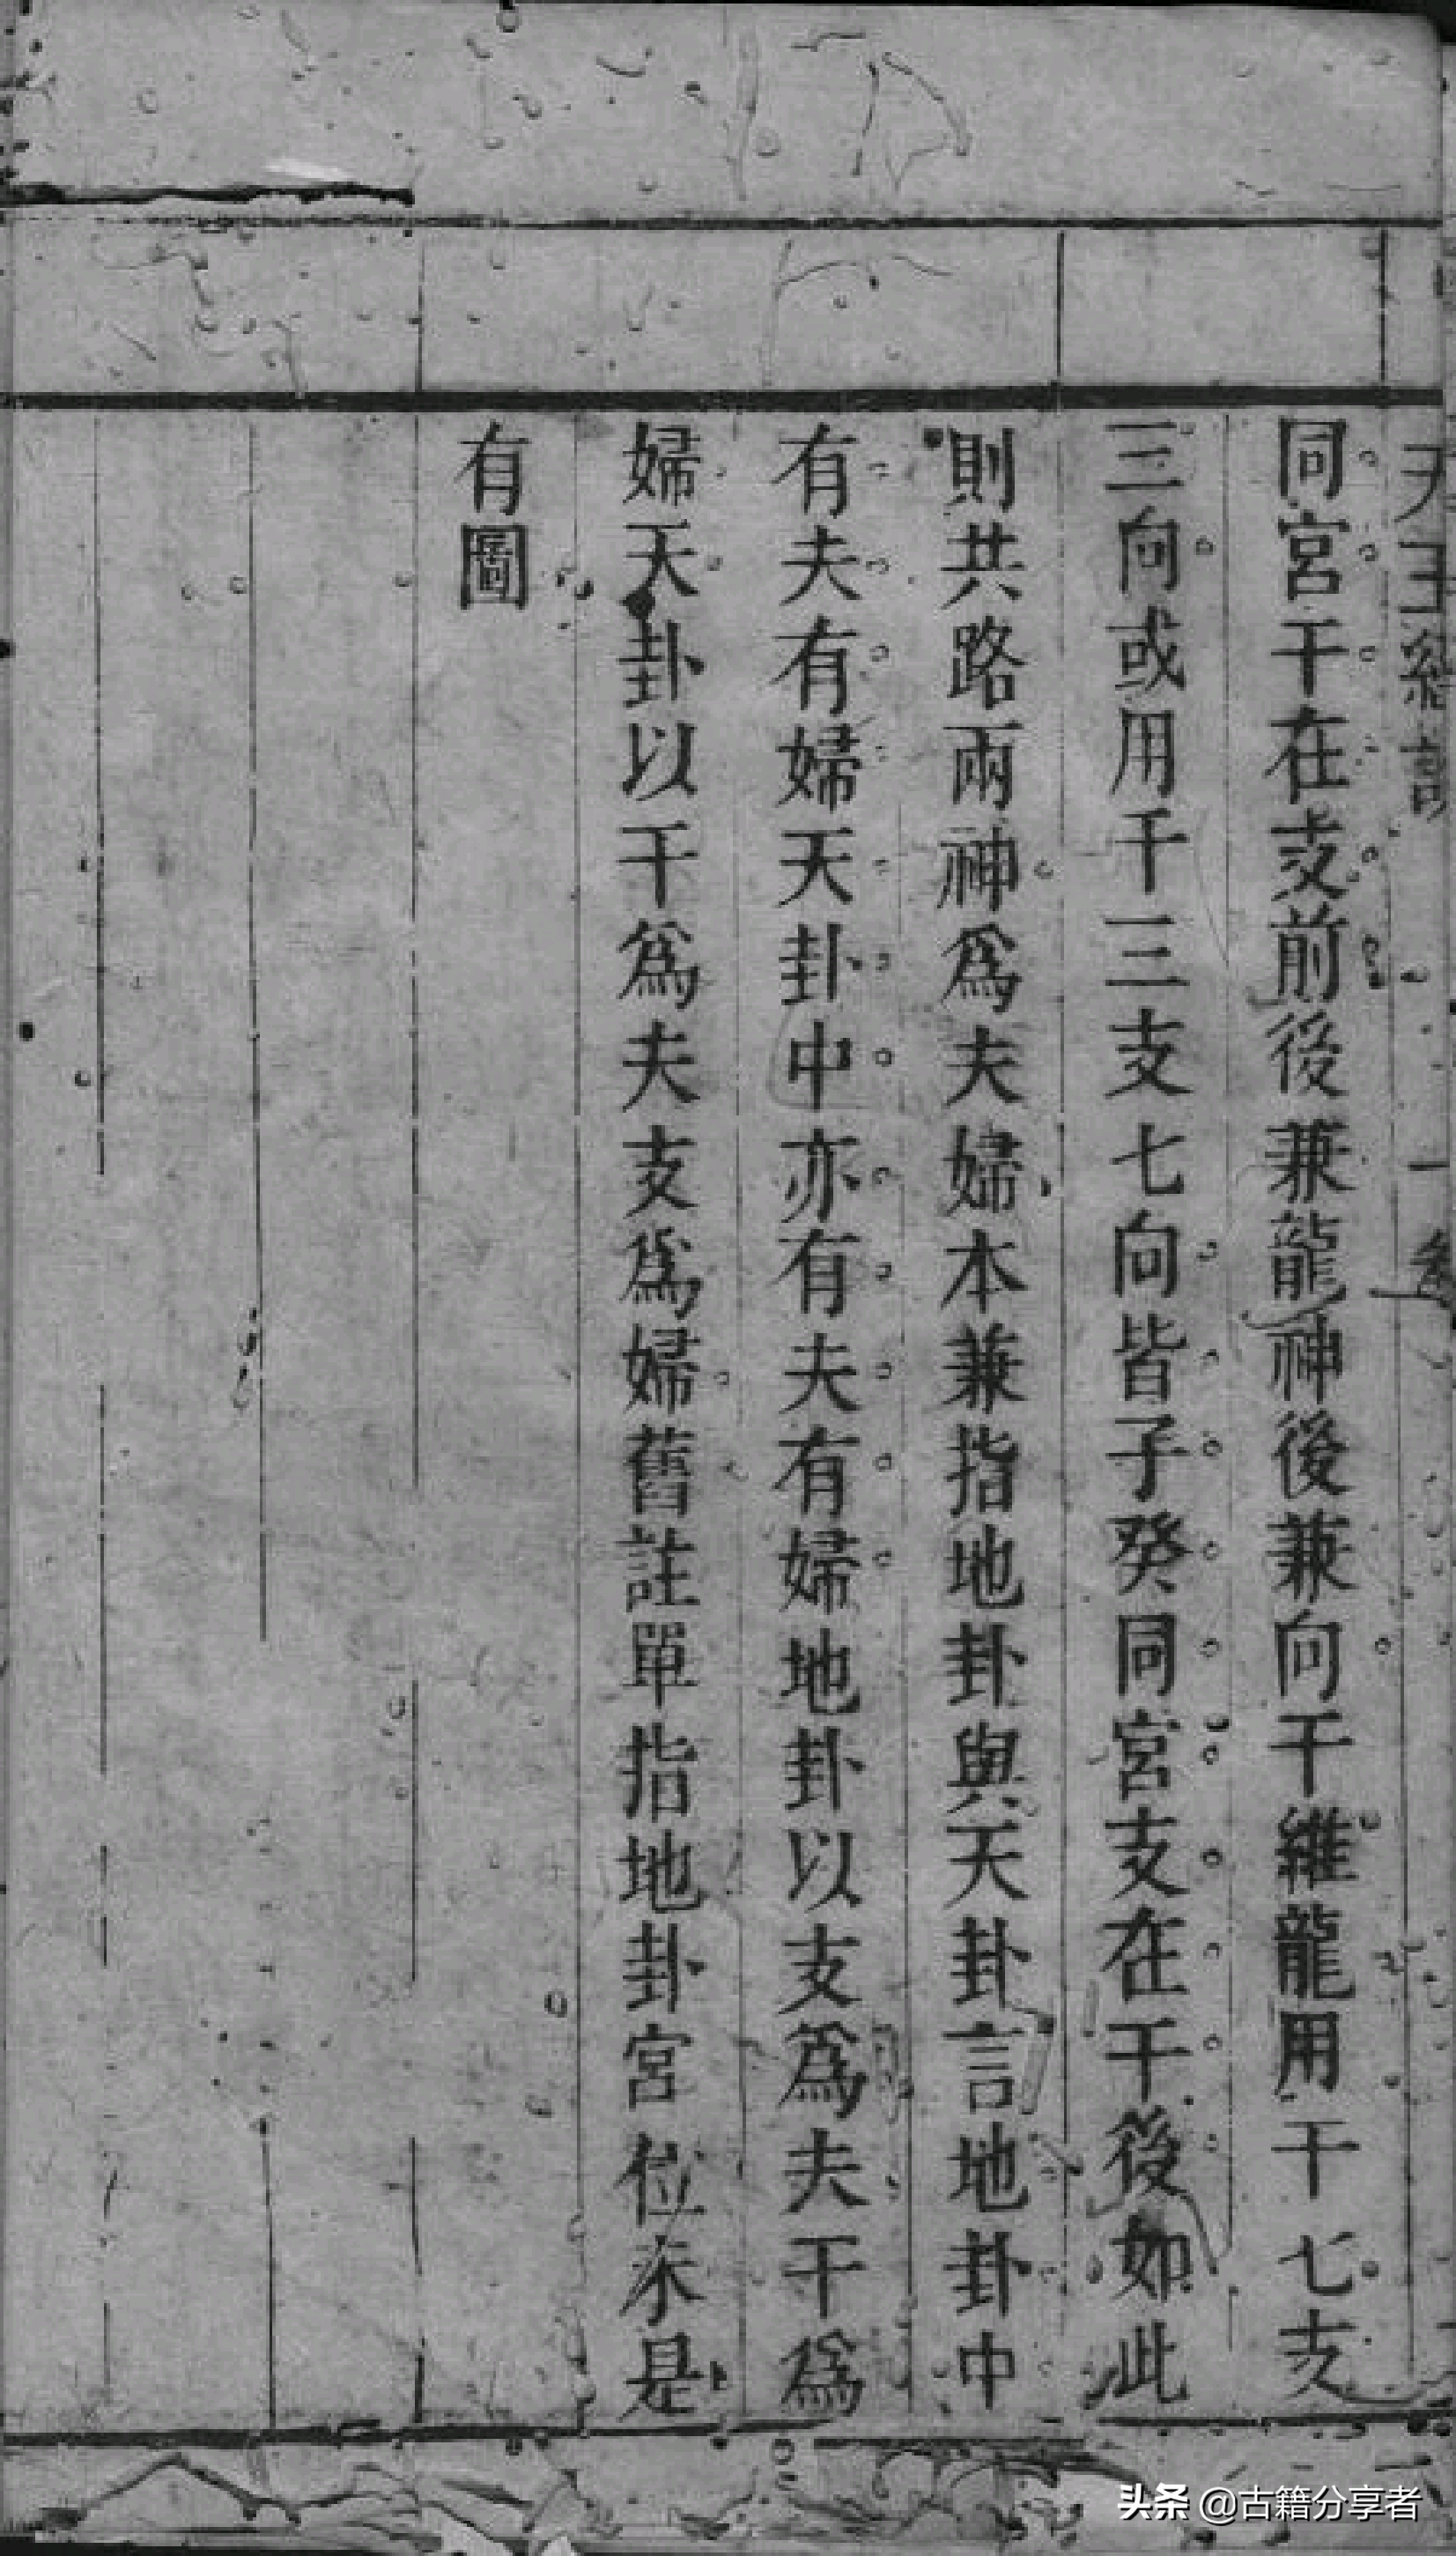 同宮干在支前後兼龍神後兼向干維龍用干七支
三向或用干三支七向皆子癸同宮支在干後如此
則共路兩神爲夫婦本兼指地卦與天卦言地卦中
有夫有婦天卦中亦有夫有婦地卦以支爲夫干爲
婦天卦以干爲夫支爲婦舊註單指地卦宮位未是
有圖
头条 @古籍分享者